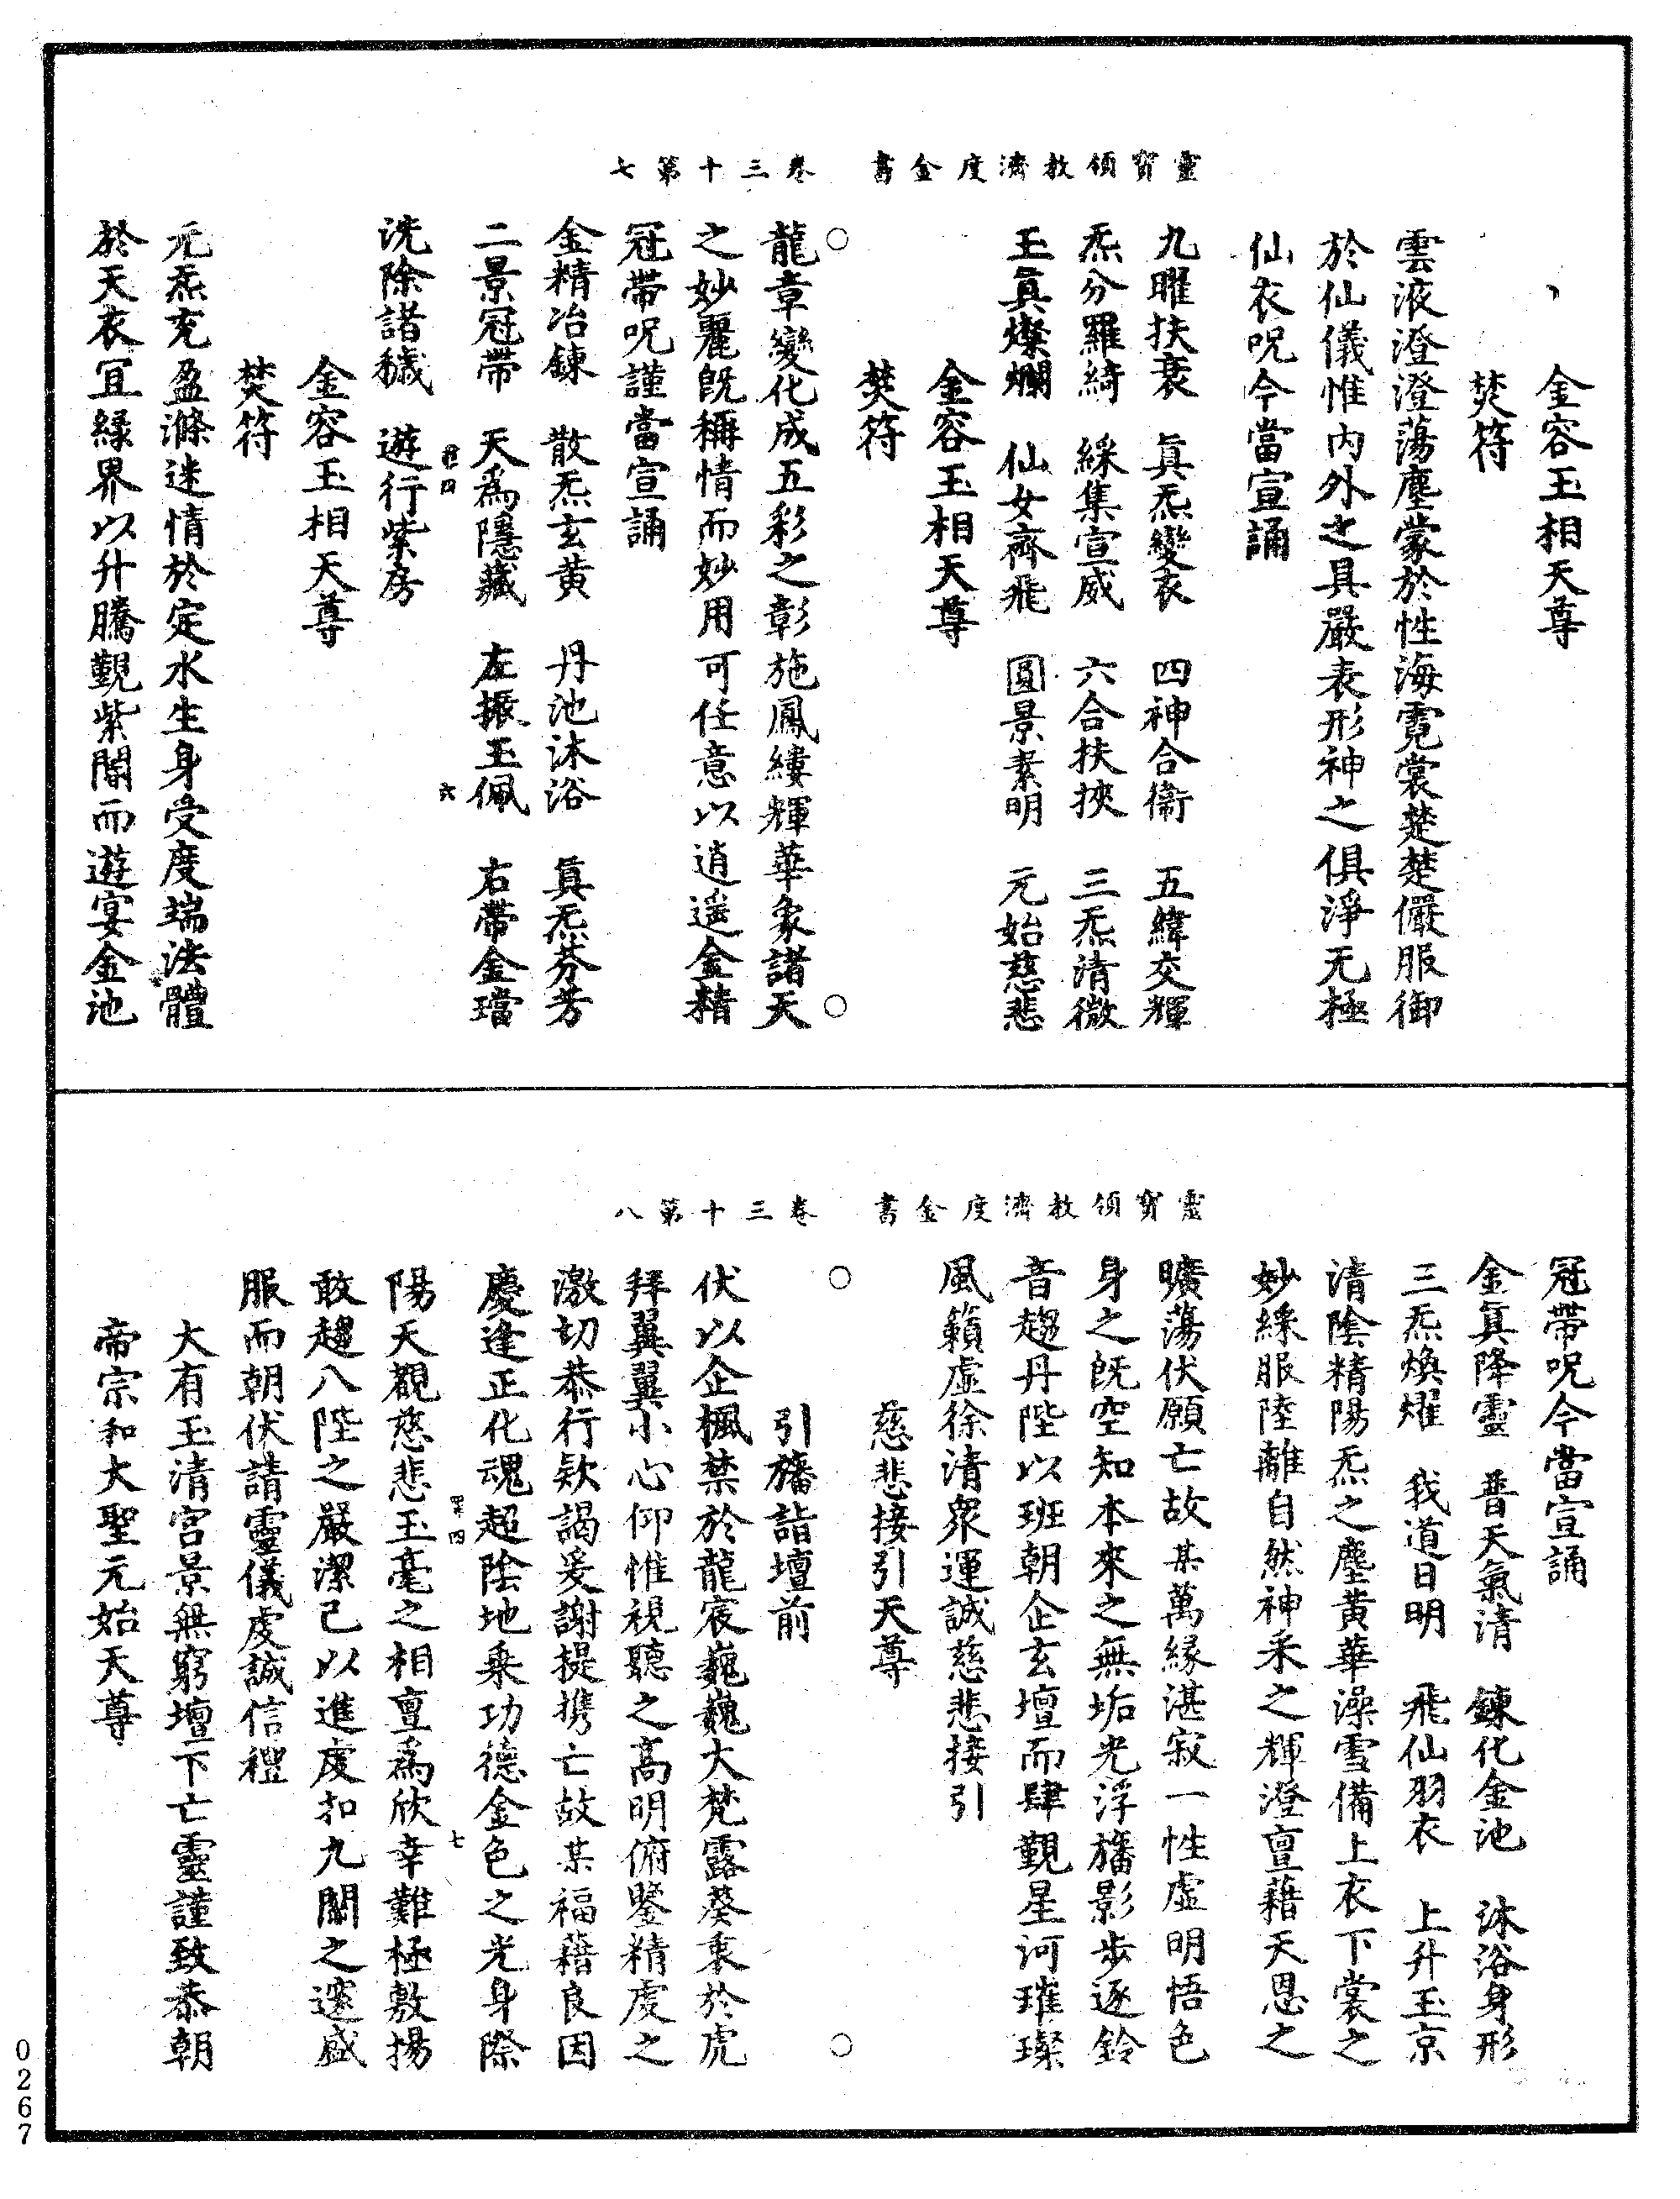 靈寶領教濟度金書　卷三十第七
金容玉相天尊
焚符
雲液澄澄蕩塵蒙於性海霓裳楚楚儼服御
於仙儀惟內外之具嚴表形神之俱淨无極
仙衣呪今當宣誦
九曜扶衰　真炁變衣　四神合衞　五緯交輝
炁分羅綺　綵集宣威　六合扶挾　三炁清微
玉真燦爛　仙女齊飛　圓景素明　元始慈悲
金容玉相天尊
焚符
龍章變化成五彩之彰施鳳縷輝華象諸天
之妙麗旣稱情而妙用可任意以逍遥金精
冠帶呪謹當宣誦
金精冶鍊　散炁玄黃　丹池沐浴　真炁芬芳
二景冠帶　天爲隱藏　左振玉佩　右帶金璫
六
洗除諸穢　遊行紫房
金容玉相天尊
焚符
元炁充盈滌迷情於定水生身受度端法體
於天衣冝緣界以升騰覲紫闕而遊宴金池
靈寶領教濟度金書　卷三十第八
冠帶呪今當宣誦
金真降靈　普天氣清　鍊化金池　沐浴身形
三炁煥燿　我道日明　飛仙羽衣　上升玉京
清陰精陽炁之塵黃華澡雪備上衣下裳之
妙綵服陸離自然神釆之輝澄亶藉天恩之
曠蕩伏願亡故某萬緣湛寂一性虛明悟色
身之旣空知本來之無垢光浮旛影步逐鈴
音趨丹陛以班朝企玄壇而肆覲星河璀璨
風籟虛徐清衆運誠慈悲接引
慈悲接引天尊
引旛詣壇前
伏以企楓禁於龍宸巍巍大梵露葵衷於虎
拜翼翼小心仰惟視聽之高明俯鑒精虔之
激切恭行欵謁爰謝提携亡故某福藉良因
慶逢正化魂超陰地乘功德金色之光身際
七
陽天觀慈悲玉毫之相亶爲欣幸難極敷揚
敢趨八陛之嚴潔己以進虔扣九關之邃盛
服而朝伏請靈儀虔誠信禮
大有玉清宮景無窮壇下亡靈謹致恭朝
帝宗和大聖元始天尊
0267